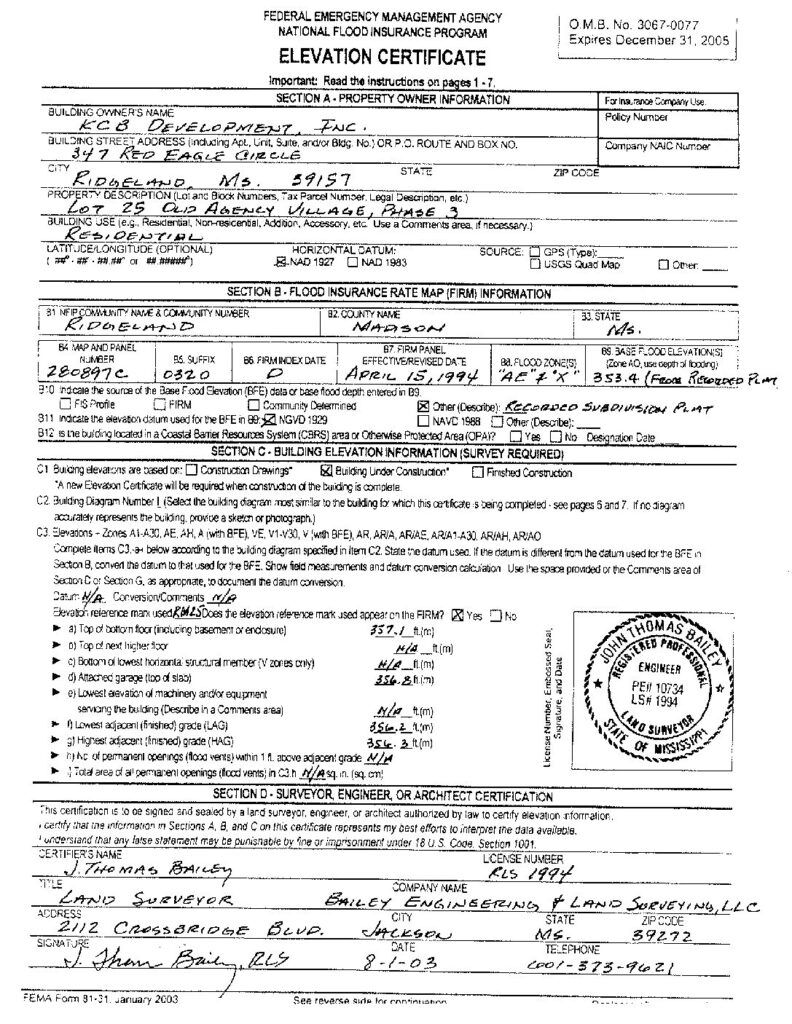 FEDERAL EMERGENCY MANAGEMENT AGENCY
NATIONAL FLOOD INSURANCE PROGRAM
O.M.B. No. 3067-0077
Expires December 31, 2005
ELEVATION CERTIFICATE
Important: Read the instructions on pages 1 - 7.
SECTION A - PROPERTY OWNER INFORMATION
For Insurance Company Use:
BUILDING OWNER'S NAME
KCB DEVELOPMENT, INC.
Policy Number
BUILDING STREET ADDRESS (Including Apt., Unit, Suite, and/or Bldg. No.) OR P.O. ROUTE AND BOX NO.
347 RED EAGLE CIRCLE
Company NAIC Number
CITY STATE ZIP CODE
RIDGELAND, MS. 39157
PROPERTY DESCRIPTION (Lot and Block Numbers, Tax Parcel Number, Legal Description, etc.)
LOT 25 OLD AGENCY VILLAGE, PHASE 3
BUILDING USE (e.g., Residential, Non-residential, Addition, Accessory, etc. Use a Comments area, if necessary.)
RESIDENTIAL
LATITUDE/LONGITUDE (OPTIONAL) HORIZONTAL DATUM: SOURCE: GPS (Type):
( ##° - ## - ##.##" or ##.#####°) NAD 1927 NAD 1983 USGS Quad Map Other:
SECTION B - FLOOD INSURANCE RATE MAP (FIRM) INFORMATION
B1. NFIP COMMUNITY NAME & COMMUNITY NUMBER B2. COUNTY NAME B3. STATE
RIDGELAND MADISON MS.
B4. MAP AND PANEL NUMBER B5. SUFFIX B6. FIRM INDEX DATE B7. FIRM PANEL EFFECTIVE/REVISED DATE B8. FLOOD ZONE(S) B9. BASE FLOOD ELEVATION(S) (Zone AO, use depth of flooding)
280897C 0320 D APRIL 15, 1994 "AE" & "X" 353.4 (FROM RECORDED PLAT
B10. Indicate the source of the Base Flood Elevation (BFE) data or base flood depth entered in B9.
FIS Profile FIRM Community Determined Other (Describe): RECORDED SUBDIVISION PLAT
B11. Indicate the elevation datum used for the BFE in B9: NGVD 1929 NAVD 1988 Other (Describe):
B12. Is the building located in a Coastal Barrier Resources System (CBRS) area or Otherwise Protected Area (OPA)? Yes No Designation Date
SECTION C - BUILDING ELEVATION INFORMATION (SURVEY REQUIRED)
C1. Building elevations are based on: Construction Drawings* Building Under Construction* Finished Construction
*A new Elevation Certificate will be required when construction of the building is complete.
C2. Building Diagram Number 1 (Select the building diagram most similar to the building for which this certificate is being completed - see pages 6 and 7. If no diagram
accurately represents the building, provide a sketch or photograph.)
C3. Elevations – Zones A1-A30, AE, AH, A (with BFE), VE, V1-V30, V (with BFE), AR, AR/A, AR/AE, AR/A1-A30, AR/AH, AR/AO
Complete items C3.-a-i below according to the building diagram specified in item C2. State the datum used. If the datum is different from the datum used for the BFE in
Section B, convert the datum to that used for the BFE. Show field measurements and datum conversion calculation. Use the space provided or the Comments area of
Section D or Section G, as appropriate, to document the datum conversion.
Datum N/A Conversion/Comments N/A
Elevation reference mark used Does the elevation reference mark used appear on the FIRM? Yes No
a) Top of bottom floor (including basement or enclosure) 357.1 ft.(m)
b) Top of next higher floor N/A ft.(m)
c) Bottom of lowest horizontal structural member (V zones only) N/A ft.(m)
d) Attached garage (top of slab) 356.8 ft.(m)
e) Lowest elevation of machinery and/or equipment
servicing the building (Describe in a Comments area) N/A ft.(m)
f) Lowest adjacent (finished) grade (LAG) 356.2 ft.(m)
g) Highest adjacent (finished) grade (HAG) 356.3 ft.(m)
h) No. of permanent openings (flood vents) within 1 ft. above adjacent grade N/A
i) Total area of all permanent openings (flood vents) in C3.h N/A sq. in. (sq. cm)
License Number, Embossed Seal,
Signature, and Date
JOHN THOMAS BAILEY
REGISTERED PROFESSIONAL
ENGINEER
PE# 10734
LS# 1994
LAND SURVEYOR
STATE OF MISSISSIPPI
SECTION D - SURVEYOR, ENGINEER, OR ARCHITECT CERTIFICATION
This certification is to be signed and sealed by a land surveyor, engineer, or architect authorized by law to certify elevation information.
I certify that the information in Sections A, B, and C on this certificate represents my best efforts to interpret the data available.
I understand that any false statement may be punishable by fine or imprisonment under 18 U.S. Code, Section 1001.
CERTIFIER'S NAME LICENSE NUMBER
J. THOMAS BAILEY RLS 1994
TITLE COMPANY NAME
LAND SURVEYOR BAILEY ENGINEERING & LAND SURVEYING, LLC
ADDRESS CITY STATE ZIP CODE
2112 CROSSBRIDGE BLVD. JACKSON MS. 39272
SIGNATURE DATE TELEPHONE
J. Thomas Bailey, RLS 8-1-03 601-373-9621
FEMA Form 81-31, January 2003 See reverse side for continuation